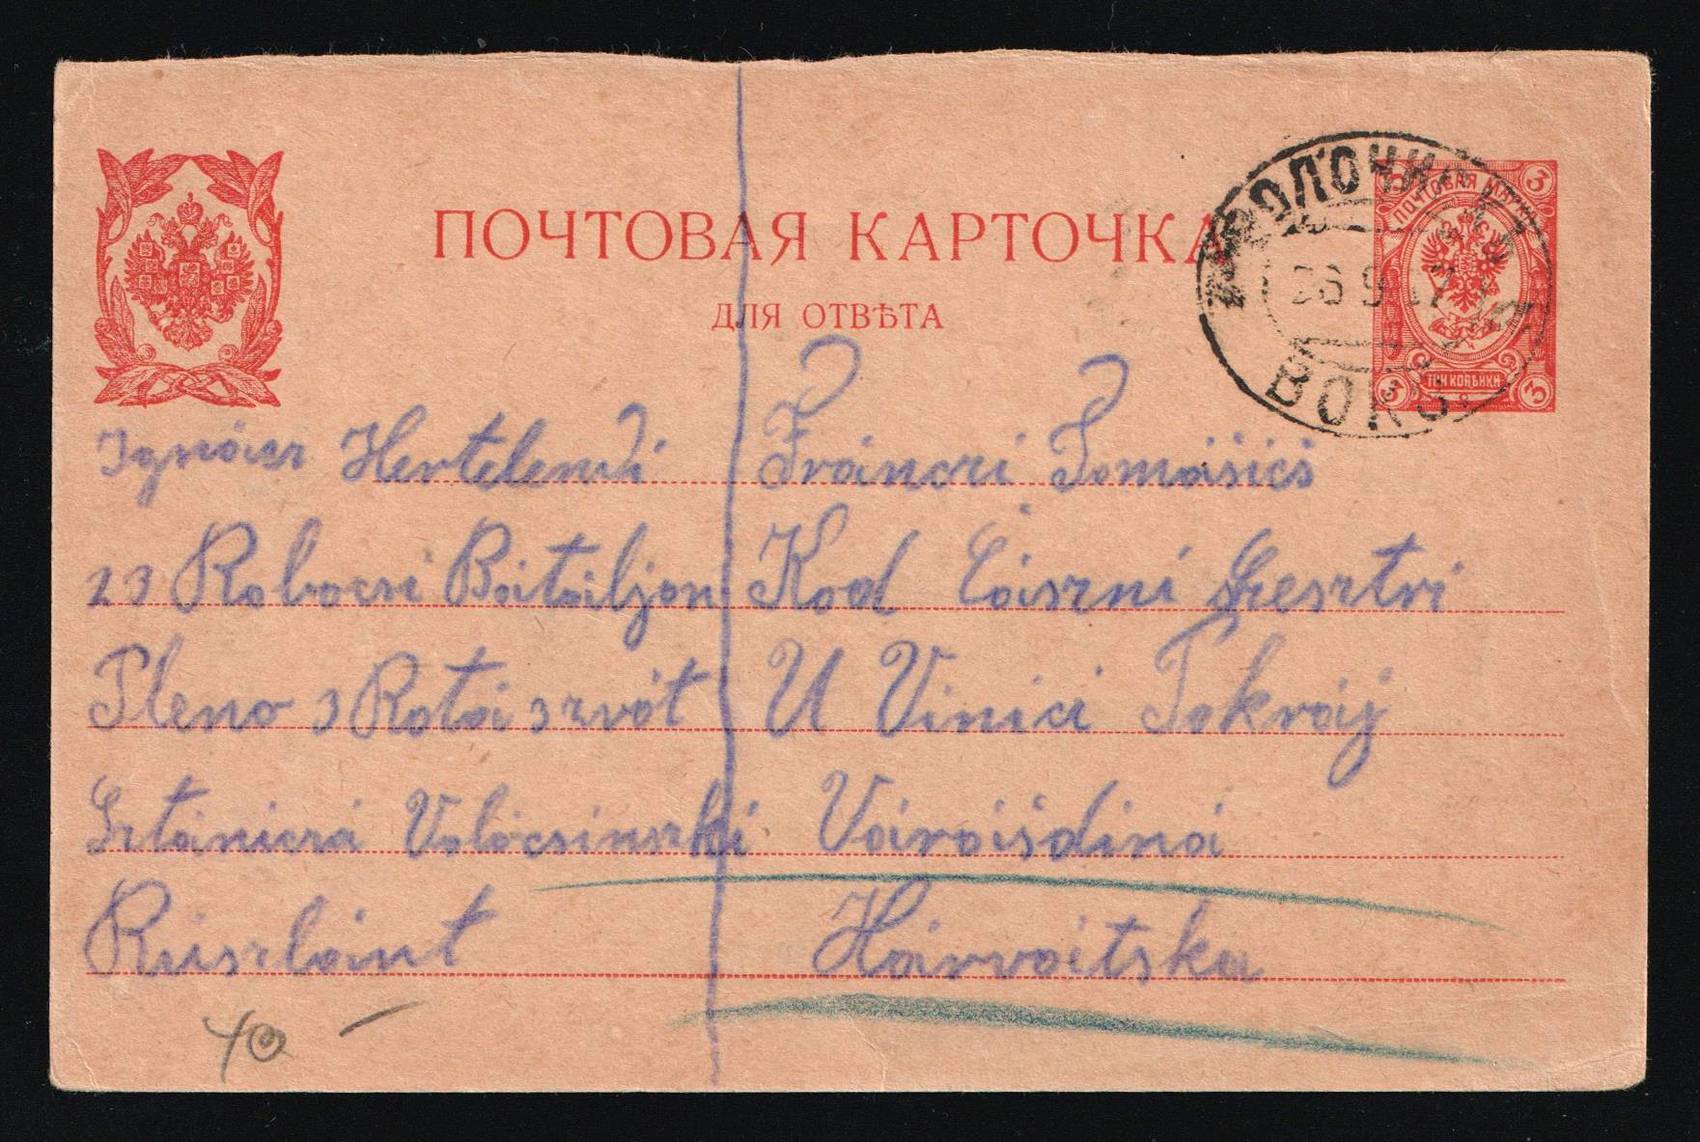 ПОЧТОВАЯ КАРТОЧКА
ДЛЯ ОТВѢТА
ПОЧТОВАЯ
3
3 ТРИ КОПѢЙКИ 3
ВОЛОЧИСКЪ
26 9 17
ВОКЗ.
Ignácz Hertelendi
23 Robocsi Bátáljon
Pleno 3 Rotá 3 zvót
Sztániczá Volocsinszki
Ruszlánt
Fránczi Tomášics
Kod Cászni Szesztri
U Vinici Pokráj
Várášdiná
Hárvátska
40 –